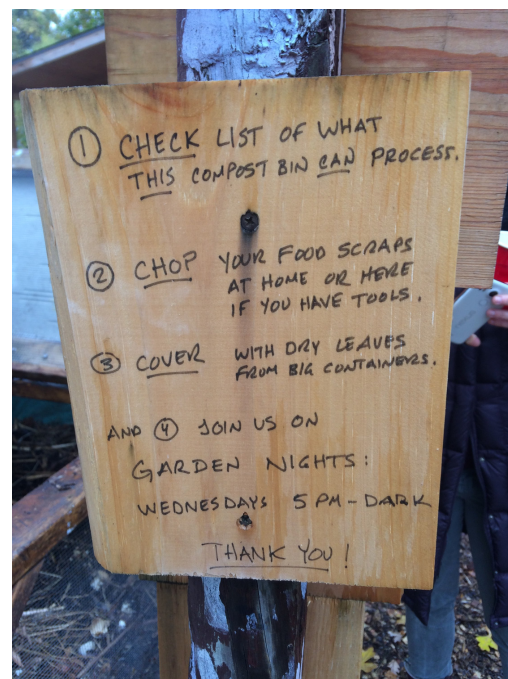 ① CHECK LIST OF WHAT
THIS COMPOST BIN CAN PROCESS.
② CHOP YOUR FOOD SCRAPS
AT HOME OR HERE
IF YOU HAVE TOOLS.
③ COVER WITH DRY LEAVES
FROM BIG CONTAINERS.
AND ④ JOIN US ON
GARDEN NIGHTS:
WEDNESDAYS 5 PM - DARK
THANK YOU!